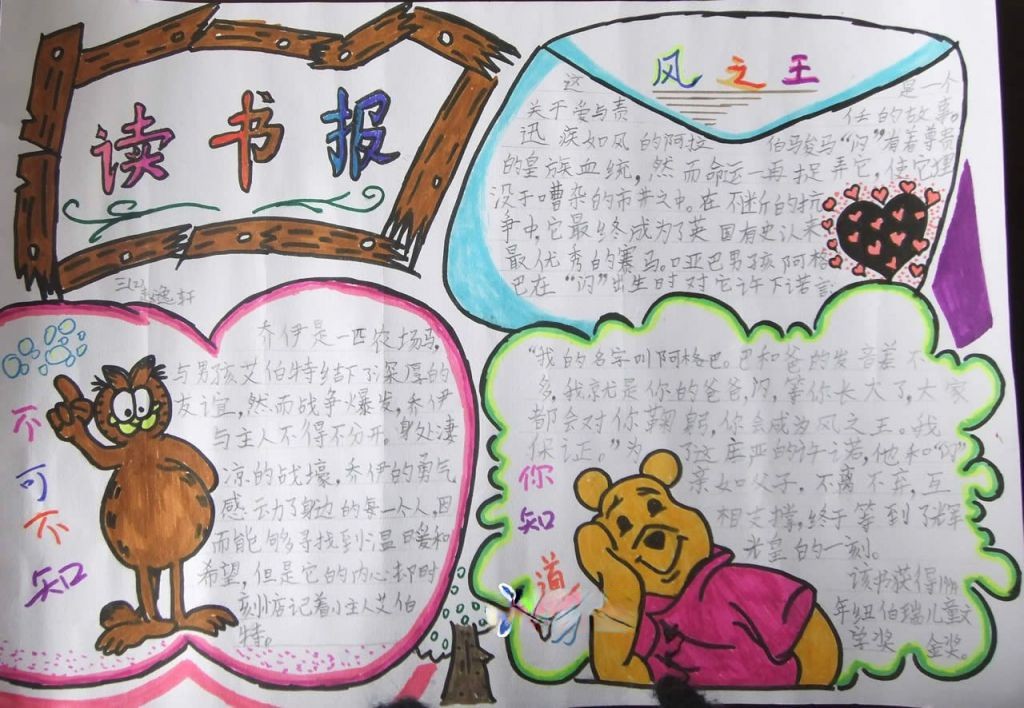 读书报
三(2)
赵逸轩
风之王
这 是一个
关于爱与责 任的故事。
迅疾如风的阿拉 伯骏马“闪”有着尊贵
的皇族血统，然而命运一再捉弄它，使它埋
没于嘈杂的市井之中。在不断的抗
争中，它最终成为了英国有史以来
最优秀的赛马。哑巴男孩阿格
巴在“闪”出生时对它许下诺言
不可不知
乔伊是一匹农场马，
与男孩艾伯特结下了深厚的
友谊，然而战争爆发，乔伊
与主人不得不分开。身处凄
凉的战壕，乔伊的勇气
感动了身边的每一个人，因
而能够寻找到温暖和
希望，但是它的内心却时
刻惦记着小主人艾伯
特。
你知道
“我的名字叫阿格巴。巴和爸的发音差不
多，我就是你的爸爸，闪，等你长大了，大家
都会对你鞠躬，你会成为风之王。我
保证。”为了这庄严的许诺，他和“闪”
亲如父子，不离不弃，互
相支撑，终于等到了辉
煌的一刻。
该书获得
年纽伯瑞儿童文
学奖 金奖。